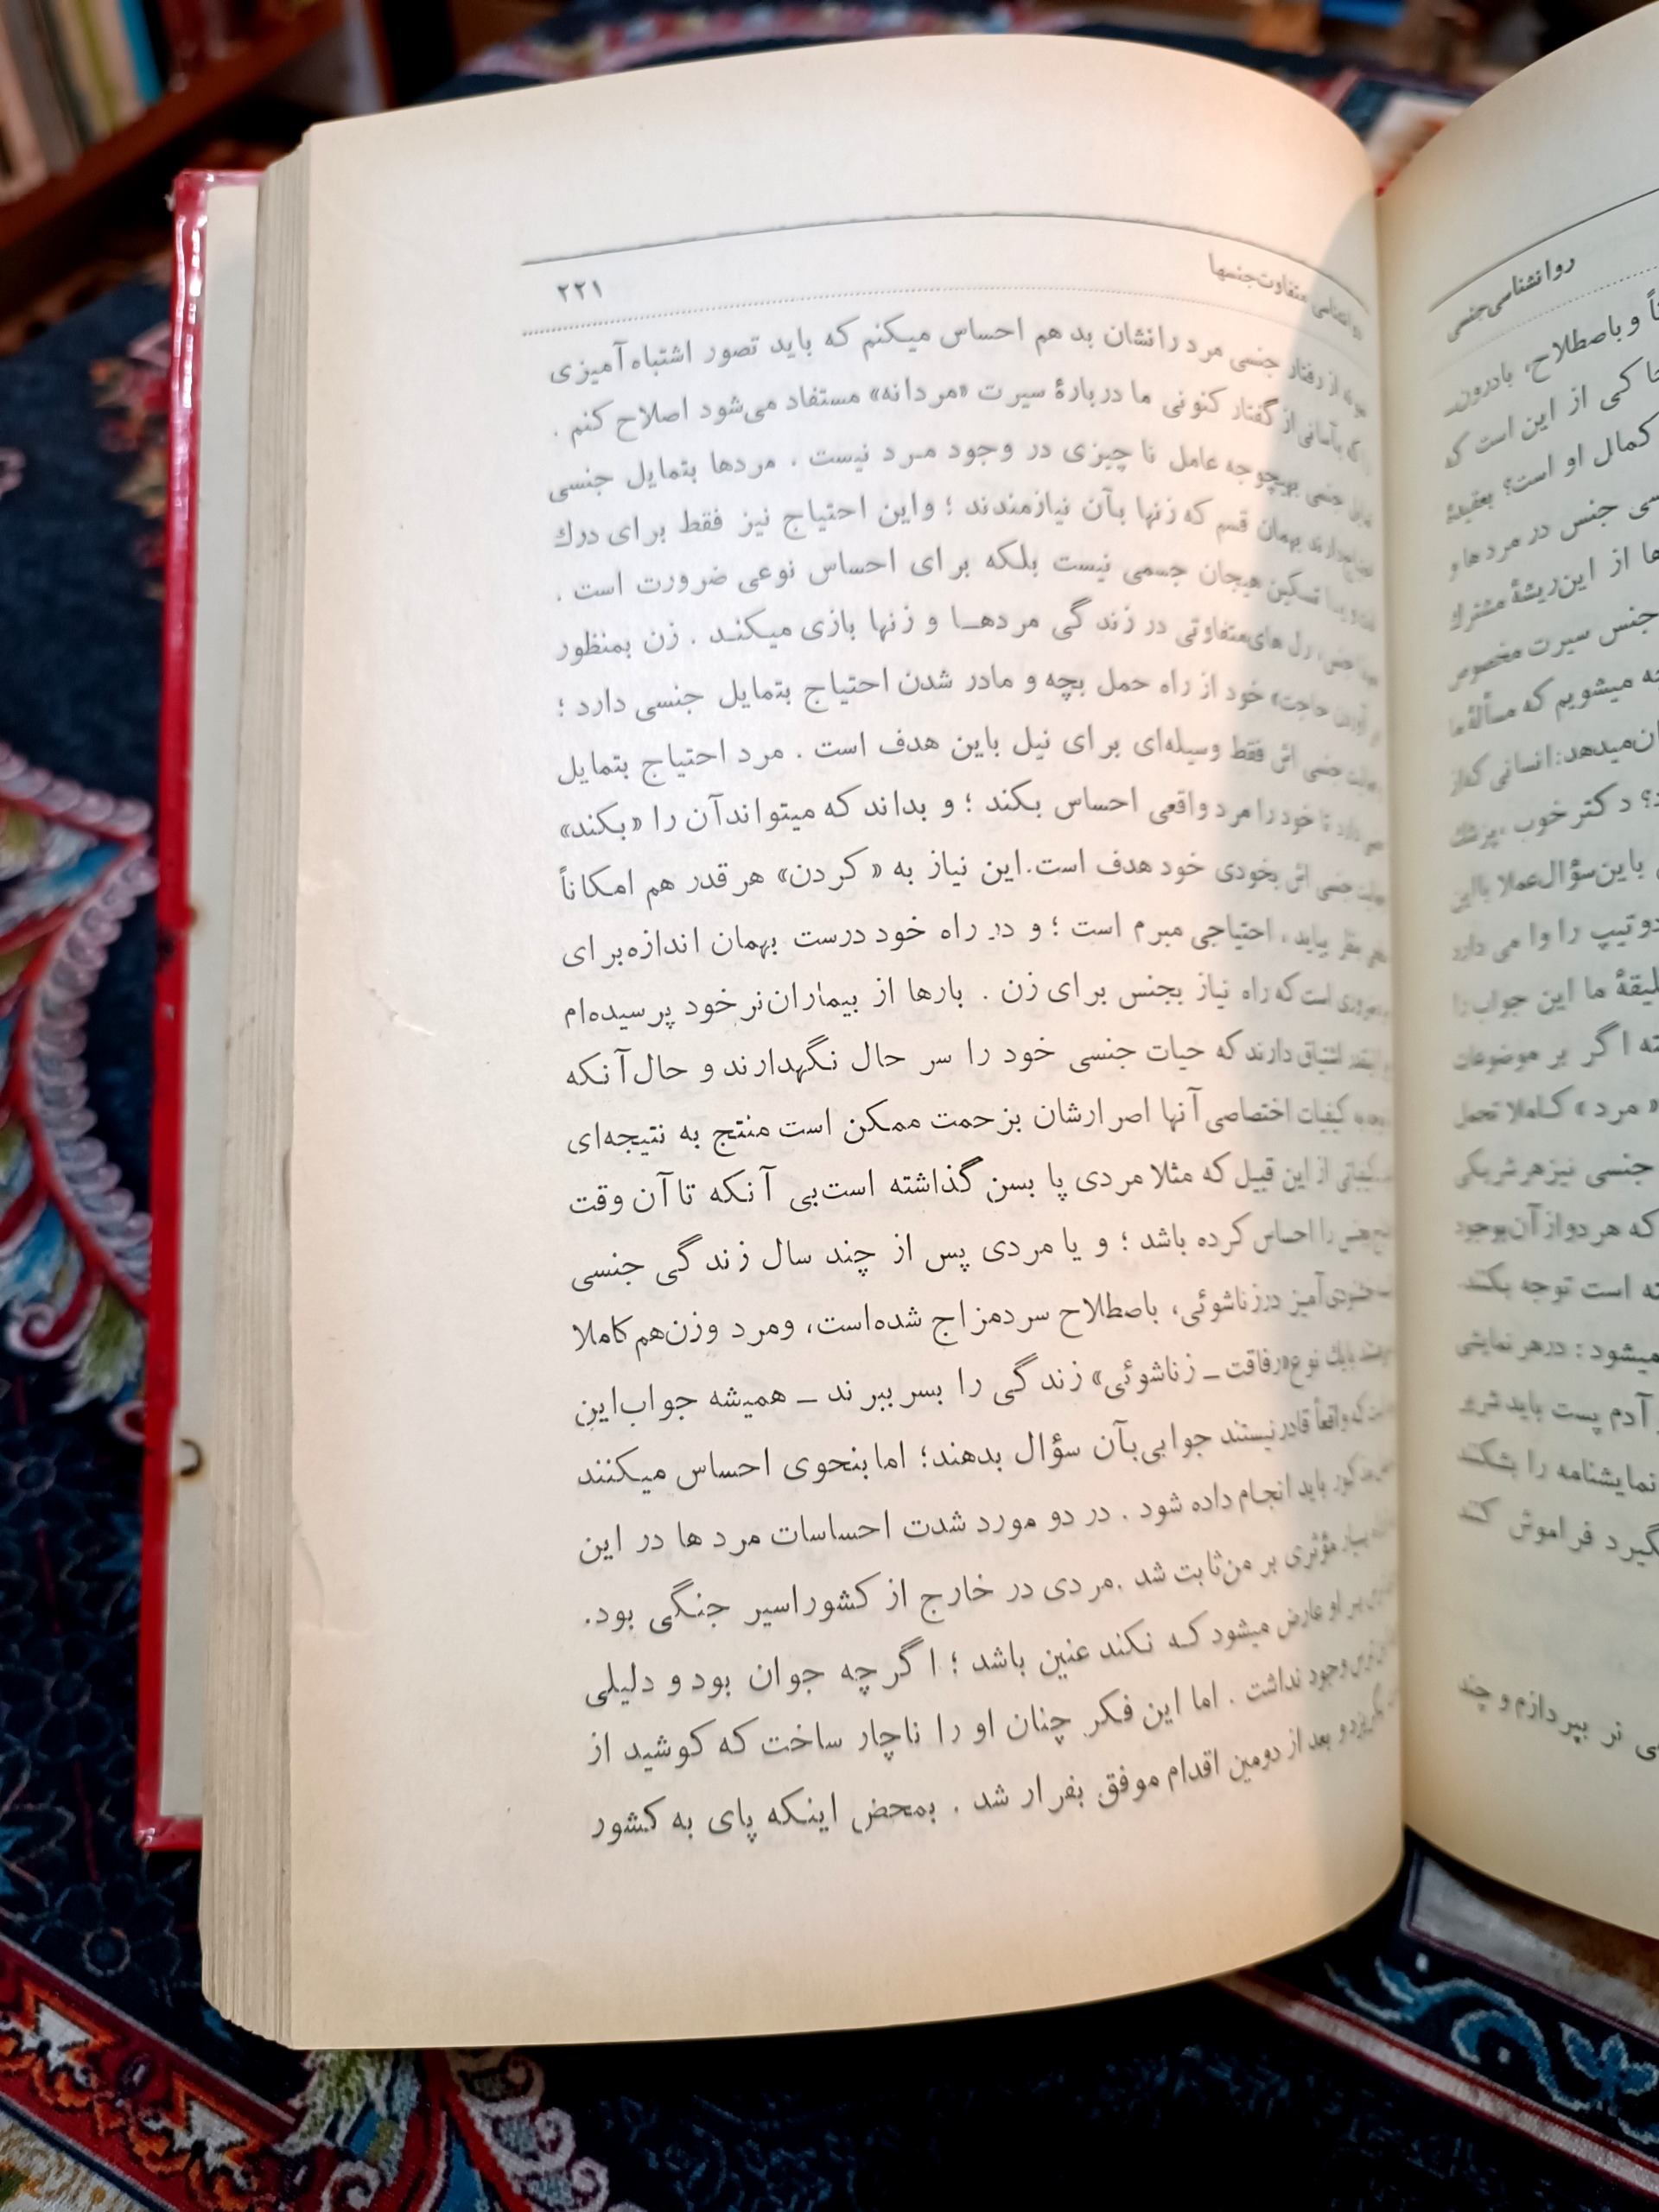 روانشناسی‌جنسی
و باصطلاح، بادرون‌ـ
کی از این است که
کمال او است؟ بعقیدهٔ
سی جنس در مردها و
ها از این‌ریشهٔ مشترك
جنس سیرت مخصوص
میشویم که مسألهٔ ما
ن‌میدهد: انسانی که‌از
دکتر خوب، پزشك
باین‌سؤال‌عملا باین
دوتیپ را وا می دارد
لیقهٔ ما این جواب‌را
ته اگر بر موضوعات
« مرد » کاملا تحمل
جنسی نیزهرشریکی
که هردوازآن‌بوجود
ته است توجه بکند
میشود : درهر نمایشی
آدم پست باید شریر
نمایشنامه را بشکند
گیرد فراموش کند
ی نر بپردازم و چند
روانشناسی متفاوت‌جنسها ۲۲۱
از رفتار جنسی مرد رانشان بدهم احساس میکنم که باید تصور اشتباه‌آمیزی
که بآسانی از گفتار کنونی ما دربارهٔ سیرت «مردانه» مستفاد می‌شود اصلاح کنم .
جنسی بهیچوجه عامل ناچیزی در وجود مرد نیست . مردها بتمایل جنسی
بهمان قسم که زنها بآن نیازمندند ؛ واین احتیاج نیز فقط برای درك
تسکین هیجان جسمی نیست بلکه برای احساس نوعی ضرورت است .
رل های‌متفاوتی در زندگی مردهـا و زنها بازی میکنـد . زن بمنظور
حاجت» خود از راه حمل بچه و مادر شدن احتیاج بتمایل جنسی دارد ؛
جنسی اش فقط وسیله‌ای برای نیل باین هدف است . مرد احتیاج بتمایل
دارد تا خود را مرد واقعی احساس بکند ؛ و بداند که میتواندآن را «بکند»
جنسی اش بخودی خود هدف است.این نیاز به « کردن» هرقدر هم امکاناً
بیابد ، احتیاجی مبرم است ؛ و در راه خود درست بهمان اندازه‌برای
است که راه نیاز بجنس برای زن . بارها از بیماران‌نر خود پرسیده‌ام
اشتیاق دارند که حیات جنسی خود را سر حال نگهدارند و حال‌آنکه
کیفیات اختصاصی آنها اصرارشان بزحمت ممکن است منتج به نتیجه‌ای
از این قبیل که مثلا مردی پا بسن گذاشته است‌بی آنکه تاآن وقت
را احساس کرده باشد ؛ و یا مردی پس از چند سال زندگی جنسی
خشنودی‌آمیز درزناشوئی، باصطلاح سردمزاج شده‌است، ومرد وزن‌هم‌کاملا
بایك نوع«رفاقت ـ زناشوئی» زندگی را بسر ببرند ـ همیشه جواب‌این
که واقعاً قادرنیستند جوابی‌بآن سؤال بدهند؛ امابنحوی احساس میکنند
باید انجام داده شود . در دو مورد شدت احساسات مردها در این
بسیار مؤثری بر من‌ثابت شد .مردی در خارج از کشوراسیر جنگی بود.
بر او عارض میشود کـه نکند عنین باشد ؛ اگرچه جوان بود و دلیلی
وجود نداشت . اما این فکر چنان او را ناچار ساخت که کوشید از
بگریزد و بعد از دومین اقدام موفق بفرار شد . بمحض اینکه پای به کشور